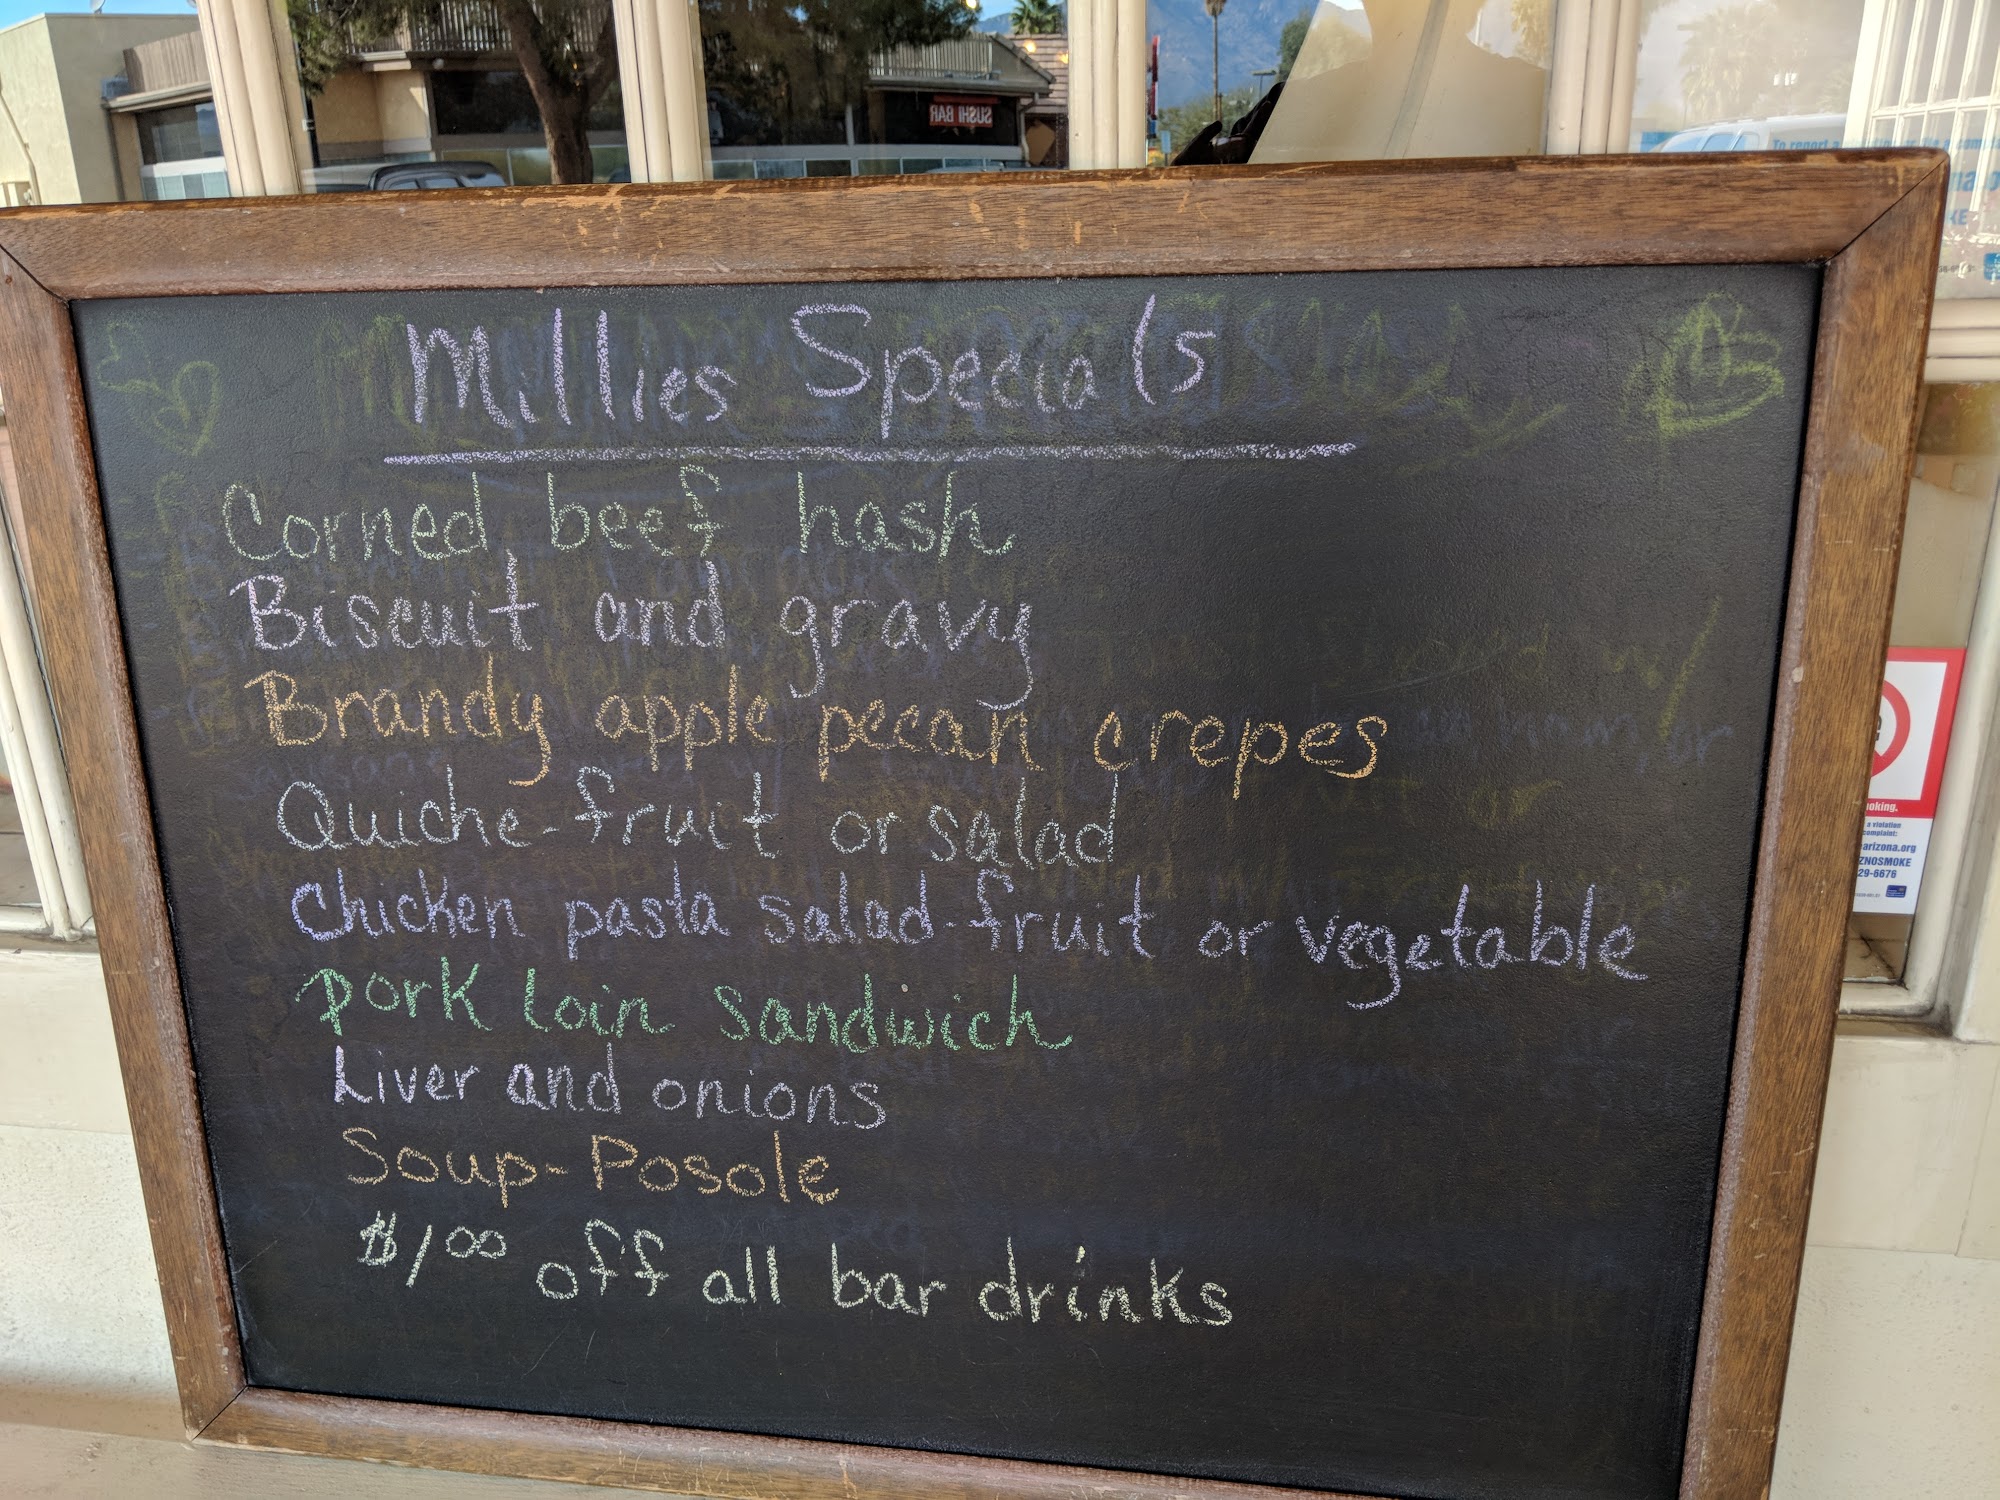 SUSHI BAR
To report a
Millies Specials
Corned beef hash
Biscuit and gravy
Brandy apple pecan crepes
Quiche-fruit or salad
Chicken pasta salad-fruit or vegetable
Pork loin sandwich
Liver and onions
Soup-Posole
$1.00 off all bar drinks
oking.
a violation
complaint:
arizona.org
ZNOSMOKE
29-6676